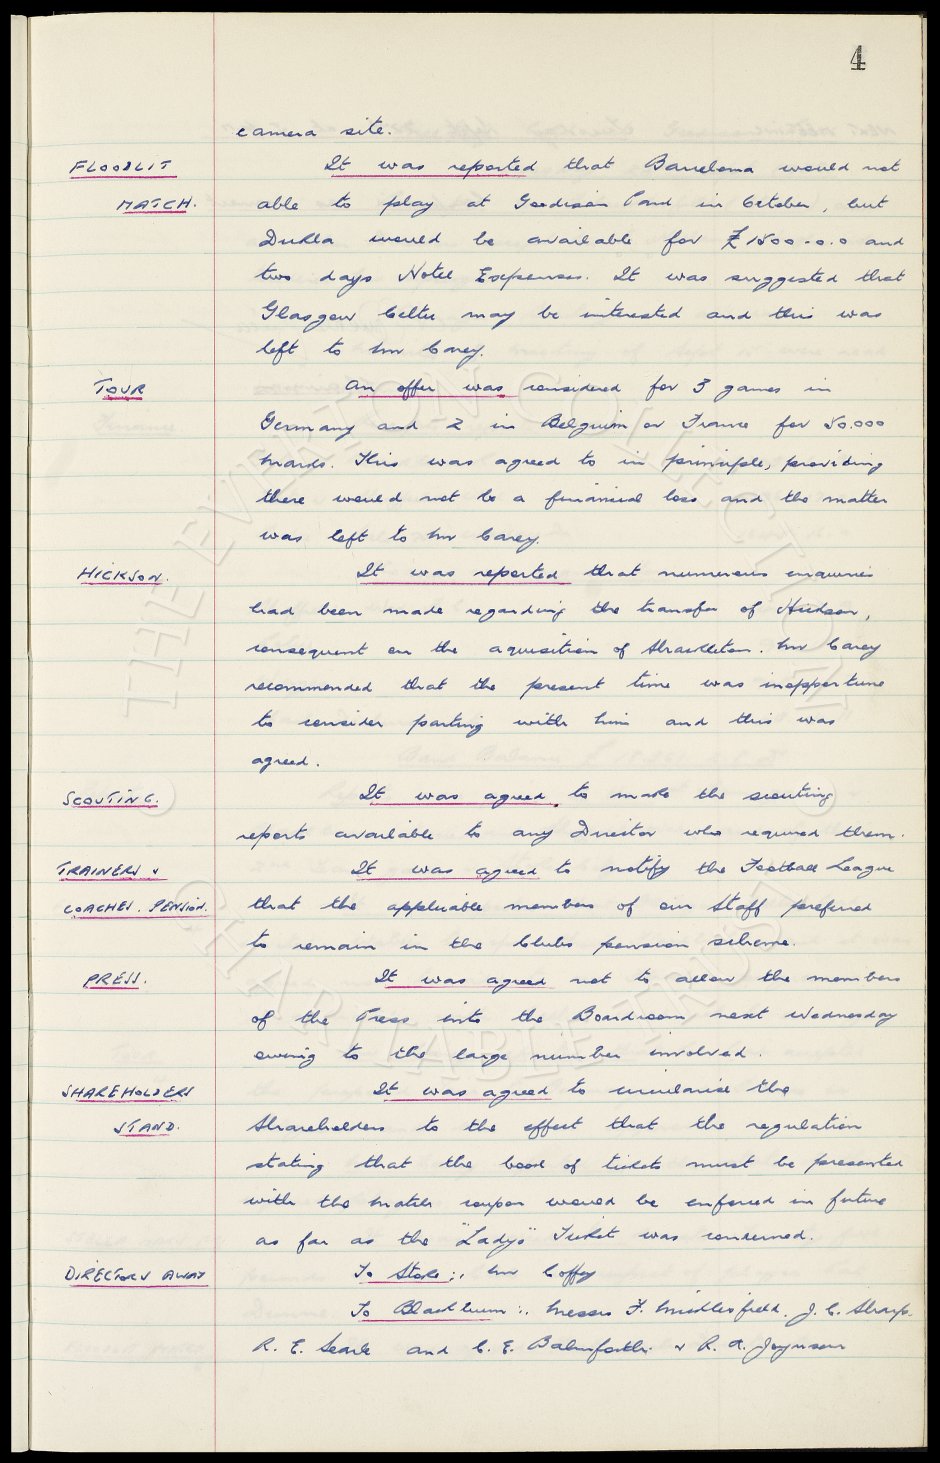 4
camera site.
FLOODLIT It was reported that Barcelona would not
MATCH. able to play at Goodison Park in October, but
Dukla would be available for £1500-0-0 and
two days Hotel Expenses. It was suggested that
Glasgow Celtic may be interested and this was
left to Mr Carey.
TOUR An offer was considered for 3 games in
Germany and 2 in Belgium or France for 50.000
marks. This was agreed to in principle, providing
there would not be a financial loss and the matter
was left to Mr Carey.
HICKSON. It was reported that numerous enquiries
had been made regarding the transfer of Hickson,
consequent on the aquisition of Shackleton. Mr Carey
recommended that the present time was inopportune
to consider parting with him and this was
agreed.
SCOUTING. It was agreed to make the scouting
reports available to any Director who required them.
TRAINERS & It was agreed to notify the Football League
COACHES. PENSION. that the applicable members of our Staff preferred
to remain in the Clubs pension scheme.
PRESS. It was agreed not to allow the members
of the Press into the Boardroom next Wednesday
owing to the large number involved.
SHAREHOLDERS It was agreed to circularise the
STAND. Shareholders to the effect that the regulation
stating that the book of tickets must be presented
with the match coupon would be enforced in future
as far as the "Ladys" Ticket was concerned.
DIRECTORS AWAY To Stoke :, Mr Coffey
To Blackburn :. Messrs F. Micklesfield. J. C. Sharp.
R. E. Searle and C. E. Balmforth. & R. A. Joynson
© THE EVERTON COLLECTION
CHARITABLE TRUST